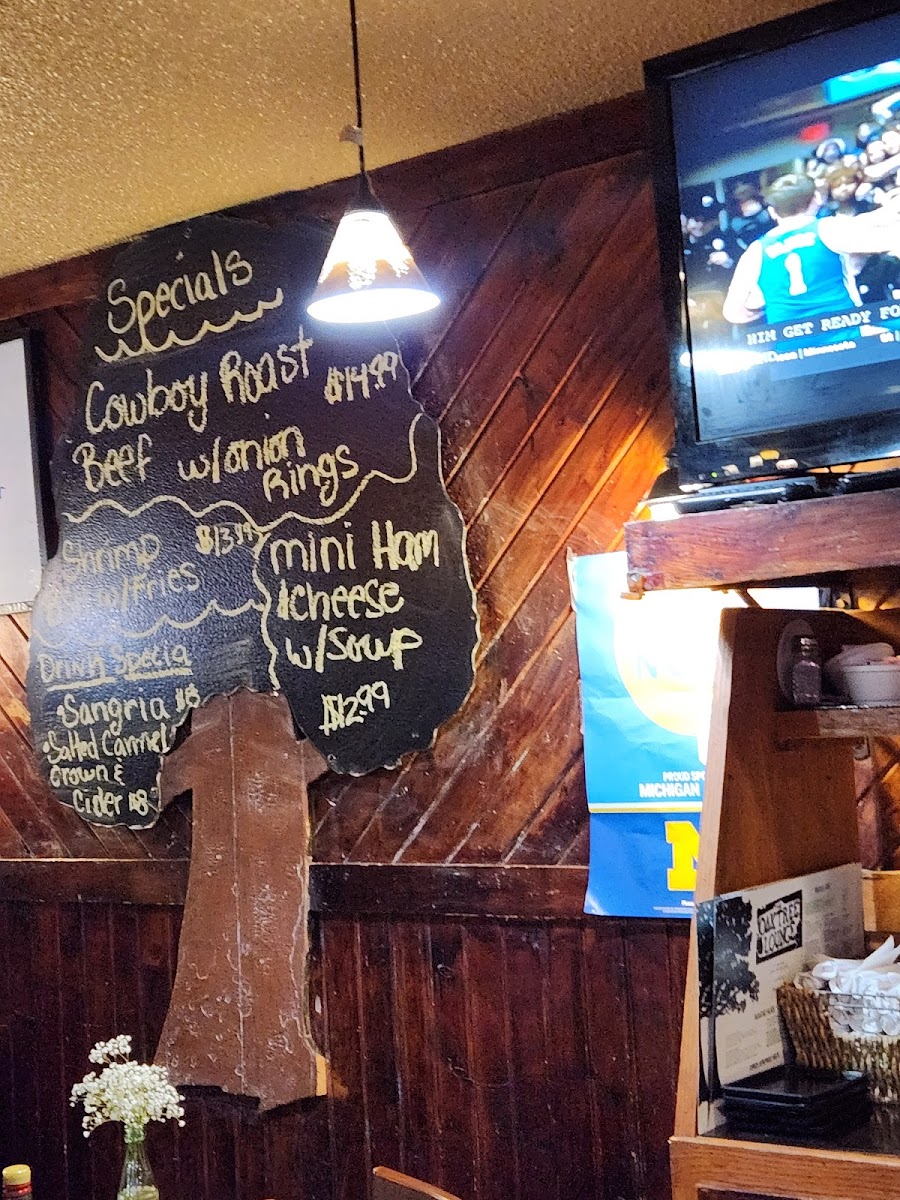 Specials
Cowboy Roast $14.99
Beef w/onion
Rings
Shrimp $13.99
w/Fries
mini Ham
&cheese
w/Soup
$12.99
Drink Special
•Sangria $8
•Salted Carmel
Crown &
Cider $8
1
HIM GET READY FO
Minnesota
PROUD
MICHIGAN
M
OAKTREE
LOUNGE